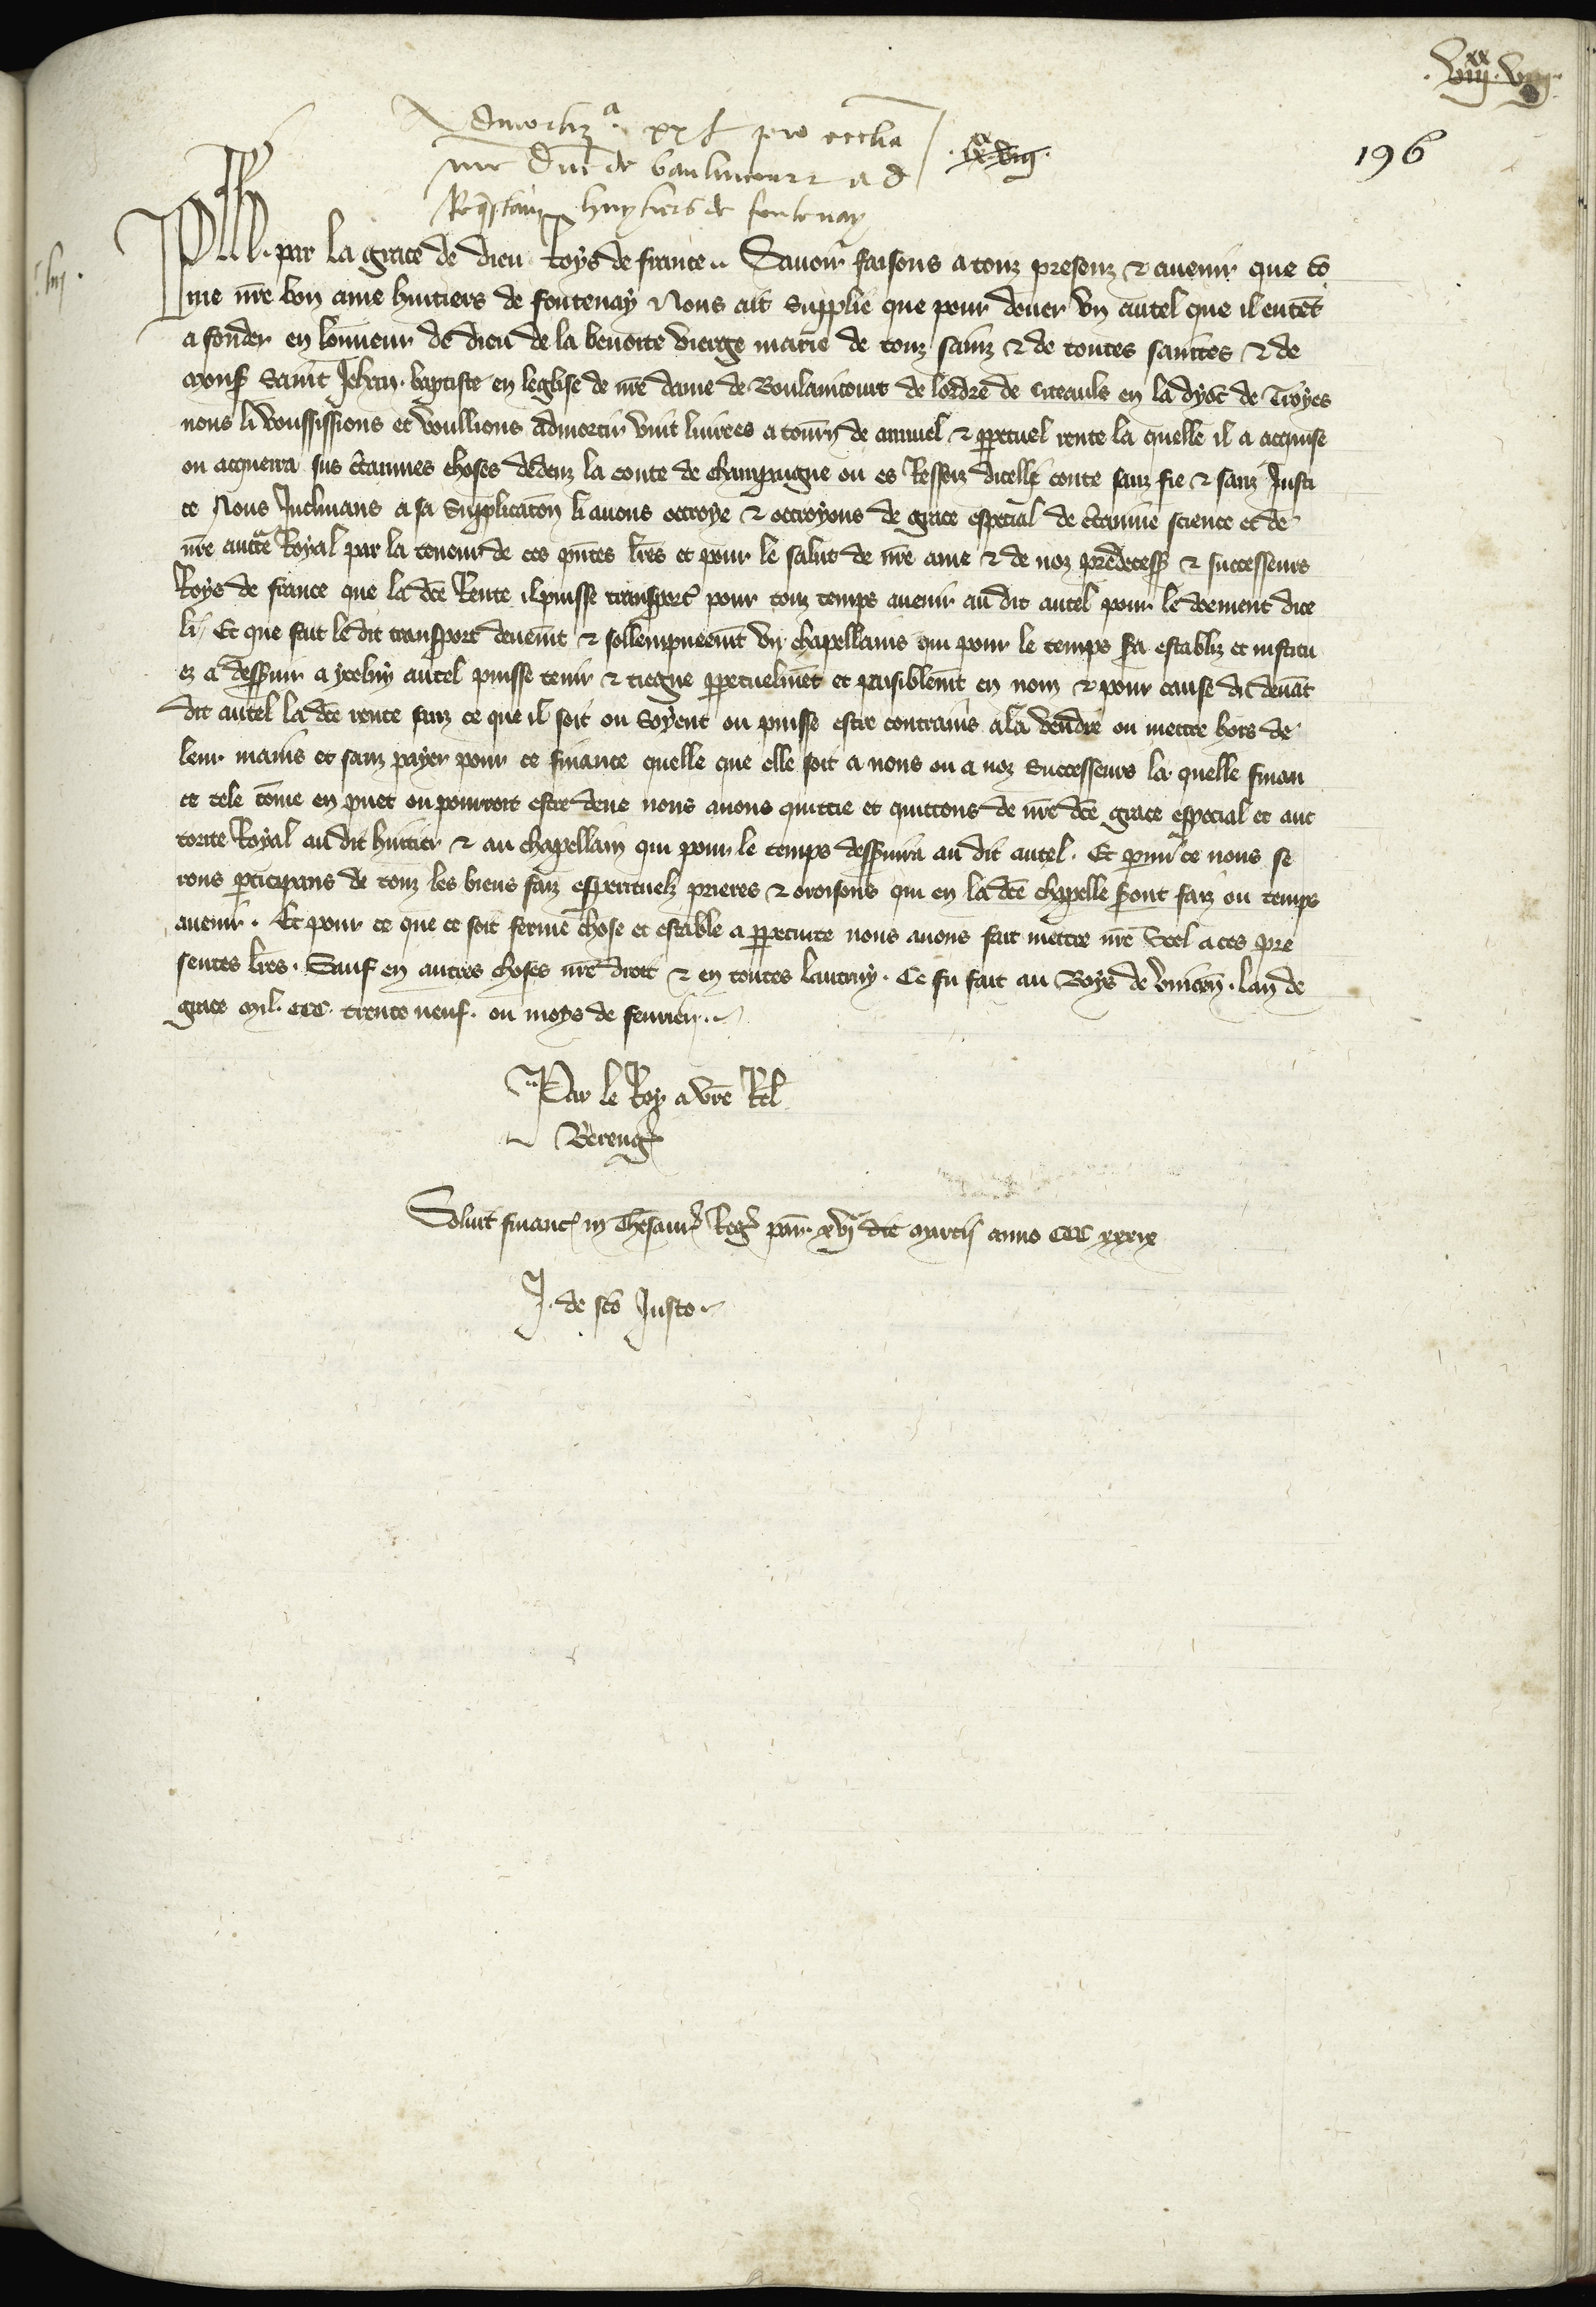 .viij.xx viij.
196
Admortiza. xx l pro ecclia
nre Dne de baulincourt ad
.ix.xx viij.
Requestam huytiers de fontenay
Ph. par la grace de dieu Roys de france. Savoir faisons a touz presenz & avenir que co
me nre bon ame huitiers de fontenay Nous ait supplie que pour douer un autel que il entent
a fonder en lonneur de dieu de la benoite vierge marie de touz sainz & de toutes saintes & de
mons saint Jehan baptiste en leglise de nre dame de Boulaincourt de lordre de citeaulx en la dyoc de Troyes
nous li voussissions et voullions admortir vint livrees a tourn de annuel & ppetuel rente la quelle il a acquise
ou acquerra sus ctaines choses dedenz la conte de champaigne ou es Ressorz dicelle conte sanz fie & sanz Justi
ce Nous Inclinans a sa supplicaton li avons octroye & octroyons de grace especial de ctaine science et de
nre aucte Royal par la teneur de ces pntes lres et pour le salut de nre ame & de noz predecess & successeurs
Roys de france que la dce Rente il puisse transport pour touz temps avenir au dit autel pour le doement dice
li Et que fait le dit transport deuemt & sollempneemt un chapellains qui pour le temps sa establiz et institu
ez a desservir a ycelluy autel puisse tenir & tiegne ppetuelmet et paisiblemt en nom & pour cause di devat
dit autel la dce rente sanz ce que il soit ou soyent ou puisse estre contrains a la vendre ou mettre hors de
leur mains et sanz payer pour ce finance quelle que elle soit a nous ou a noz successeurs la quelle finan
ce tele come en puet ou pourroit estre deue nous avons quittie et quittons de nre dce grace especial et auc
torite Royal au dit huitier & au chapellain qui pour le temps desservira au dit autel. Et pour ce nous se
rons pticipans de touz les biens faiz esperituelz prieres & oroisons qui en la dce chapelle sont faiz ou temps
avenir. Et pour ce que ce soit ferme chose et estable a ppetuite nous avons fait mettre nre seel a ces pre
sentes lres. Sauf en autres choses nre droit & en toutes lautruy. Ce fu fait au Boys de vincen. lan de
grace mil. ccc. trente neuf. ou moys de fevrier.
Par le Roy a vre Rel
Bereng
Solvit financ in Thesaur Reg par. xvj die marcii anno ccc xxxix
J. de sco Justo